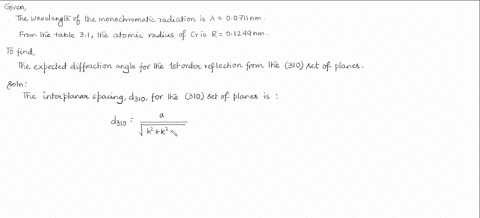 Given,
The wavelength of the monochromatic radiation is λ = 0.0711 nm.
From the table 3.1, the atomic radius of Cr is R = 0.1249 nm.
To find,
The expected diffraction angle for the 1st order reflection from the (310) set of planes.
Soln:
The interplanar spacing, d310, for the (310) set of planes is :
d310 = a / √h²+k²+